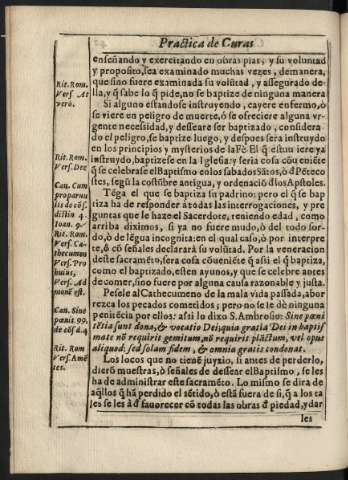 Practica de Curas
enseñando y exercitando en obras pias, y su voluntad
y proposito, sea examinado muchas vezes, demanera,
que sino fuere examinada su volũtad, y assegurado de
lla, y q̃ sabe lo q̃ pide, no se baptize de ninguna manera
Si alguno estandose instruyendo, cayere enfermo, ò
se viere en peligro de muerte, ò se ofreciere alguna vr-
gente necessidad, y desseare ser baptizado, considera-
do el peligro, se baptize luego, y despues sera instruydo
en los principios y mysterios de la Fè. El q̃ estuuiere ya
instruydo, baptizese en la Iglesia: y seria cosa cõueniẽte
q̃ se celebrase el Baptismo en los sabados Sãtos, ò d̃ Pẽteco
stes, segũ la costũbre antigua, y ordenaciõ d̃ los Apostoles.
Tẽga el que se baptiza su padrino: pero el q̃ se bap
tiza ha de responder a todas las interrogaciones, y pre
guntas que le haze el Sacerdote, teniendo edad, como
arriba diximos, si ya no fuere mudo, ò del todo sor-
do, ò de lẽgua incognita: en el qual caso, ò por interpre
te, ò cõ señales declararà su volũtad. Por la veneracion
deste sacramẽto, sera cosa cõueniẽte q̃ assi el q̃ baptiza,
como el baptizado, esten ayunos, y que se celebre antes
de comer, sino fuere por alguna causa razonable y justa.
Pesele al Cathecumeno de la mala vida passada, abor
rezca los pecados cometidos; pero no se le dè ninguna
penitẽcia por ellos: assi lo dixo S. Ambrosio: Sine pœni
tẽtia sunt dona, & vocatio Dei; quia gratia Dei in baptis
mate nõ requirit gemitum, nõ requirit plãctum, vel opus
aliquod, sed solam fidem, & omnia gratis condonat.
Los locos que no tienẽ juyzio, si antes de perderlo,
dierõ muestras, ò señales de dessear el Baptismo, se les
ha de administrar este sacramẽto. Lo mismo se dira de
aq̃llos q̃ hã perdido el sẽtido, ò està fuera de si, q̃ a los ta
les se les à d̃ fauorecer cõ todas las obras d̃ piedad, y dar
les
Rit. Rom.
Vers. At
verò.
Rit. Rom.
Vers. Dec
Can. Cum
proparuu
lis de cõs.
distin 4
Ioan. 9.
Rit. Rom.
Vers. Ca-
thecumus
Vers. Pro
huius,
Vers. Ad
monẽ est.
Can. Sine
pœnit 99.
de cõs d. 4
Rit. Rom
Vers. Amẽ
tes.